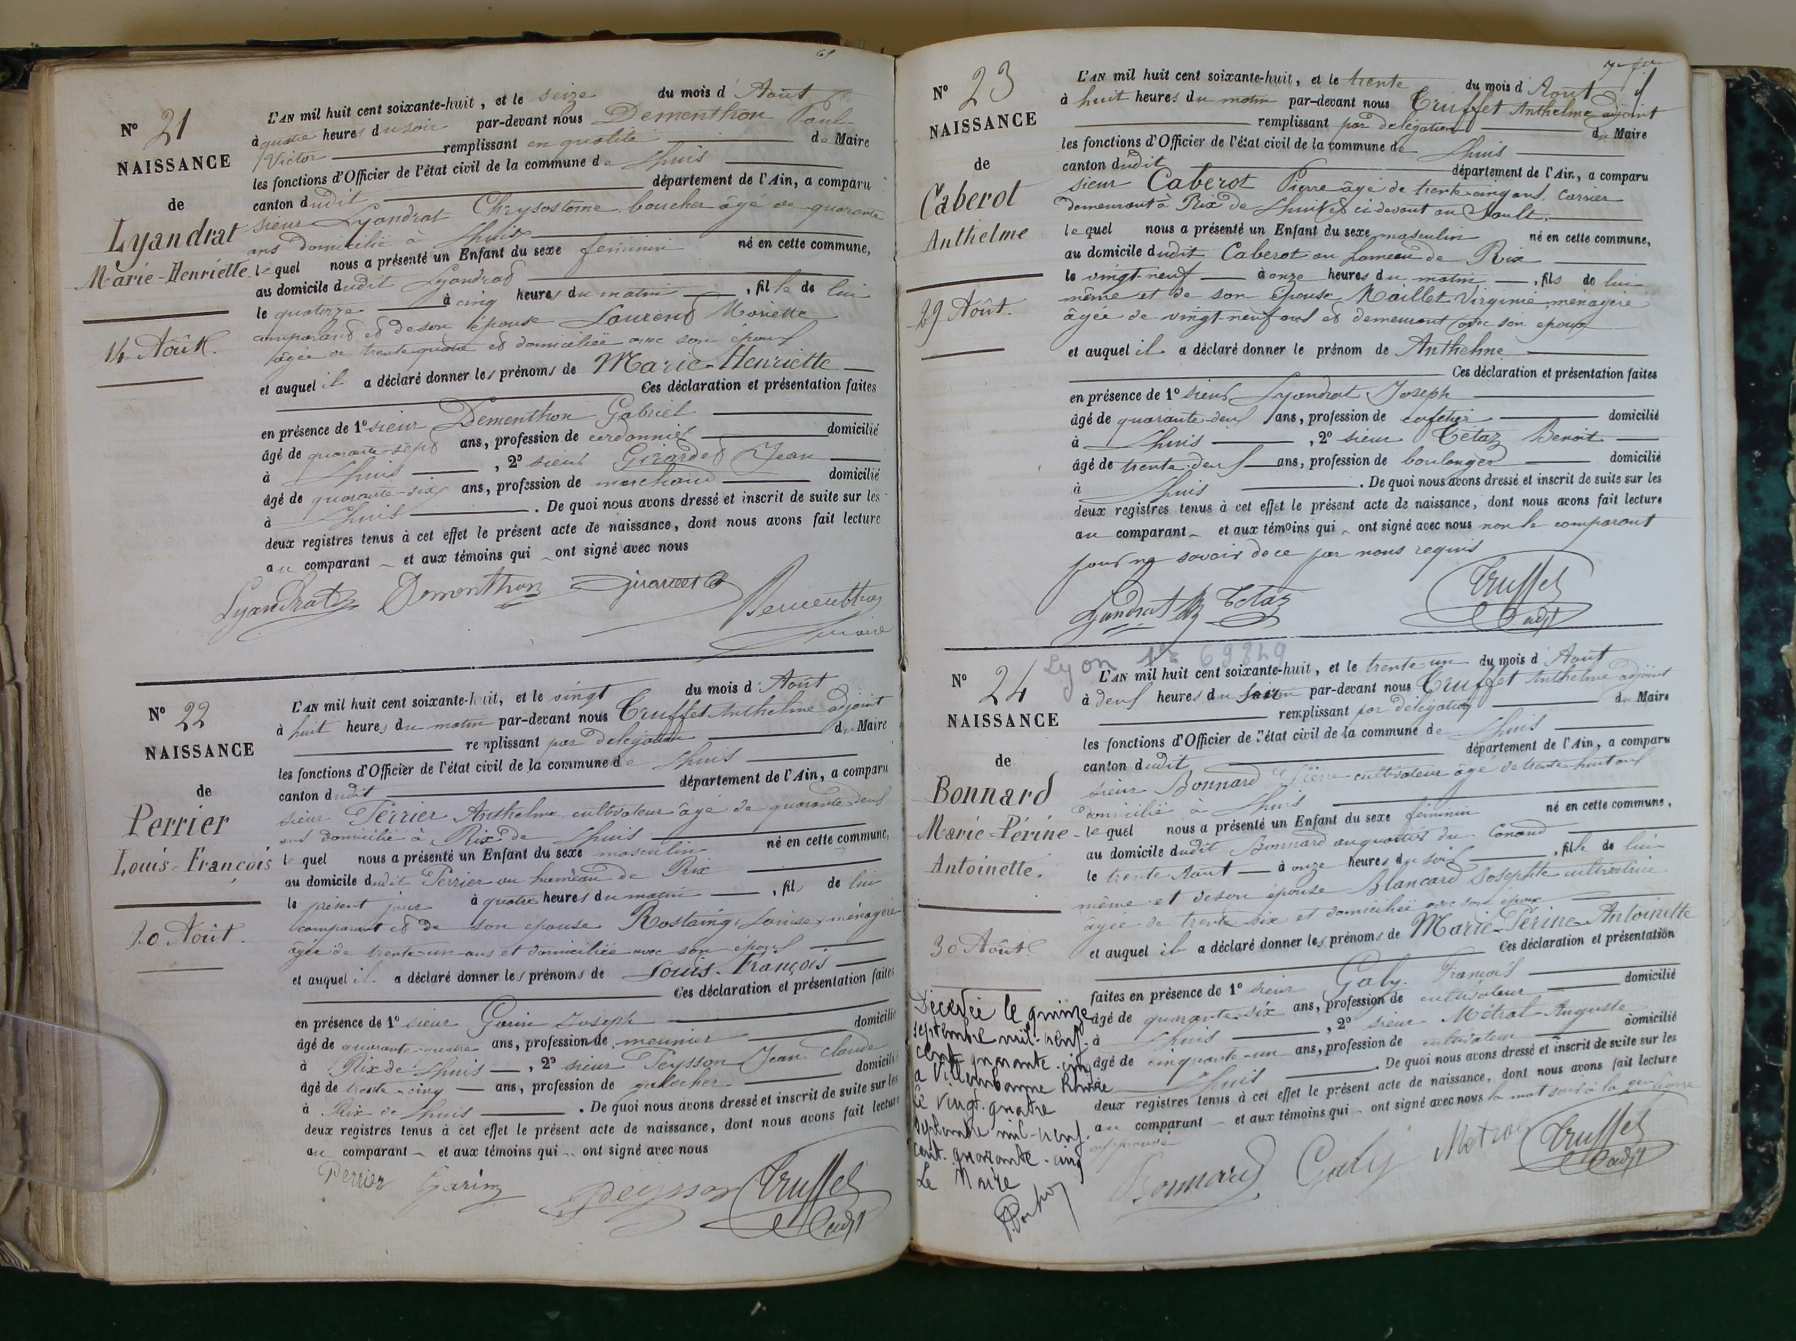 N° 21
NAISSANCE
de
Lyandrat
Marie-Henriette
14 Août.
L'AN mil huit cent soixante-huit, et le seize du mois d'Août
à quatre heures du soir par-devant nous Dementhon Paul
Victor remplissant en qualité de Maire
les fonctions d'Officier de l'état civil de la commune de Lhuis
canton dudit département de l'Ain, a comparu
sieur Lyandrat Chrysostome boucher âgé de quarante
ans domicilié à Lhuis
lequel nous a présenté un Enfant du sexe feminin né en cette commune,
au domicile dudit Lyandrat
le quatorze à cinq heures du matin, fille de lui
comparant et de son épouse Laurent Mariette
âgée de trente quatre et domiciliée avec son époux
et auquel il a déclaré donner les prénoms de Marie-Henriette
Ces déclaration et présentation faites
en présence de 1° sieur Dementhon Gabriel
âgé de quarante-sept ans, profession de cordonnier domicilié
à Lhuis, 2° sieur Girardet Jean
âgé de quarante-six ans, profession de marchand domicilié
à Lhuis. De quoi nous avons dressé et inscrit de suite sur les
deux registres tenus à cet effet le présent acte de naissance, dont nous avons fait lecture
au comparant et aux témoins qui ont signé avec nous
Lyandrat Dementhon Girardet
Dementhon
maire
N° 22
NAISSANCE
de
Perrier
Louis-François
20 Août.
L'AN mil huit cent soixante-huit, et le vingt du mois d'Août
à huit heures du matin par-devant nous Truffet Anthelme adjoint
remplissant par délégation du Maire
les fonctions d'Officier de l'état civil de la commune de Lhuis
canton dudit département de l'Ain, a comparu
sieur Perrier Anthelme cultivateur âgé de quarante deux
ans domicilié à Rix de Lhuis
lequel nous a présenté un Enfant du sexe masculin né en cette commune,
au domicile dudit Perrier au hameau de Rix
le présent jour à quatre heures du matin, fils de lui
comparant et de son épouse Rostaing Louise ménagère
âgée de trente-un ans et domiciliée avec son époux
et auquel il a déclaré donner les prénoms de Louis-François
Ces déclaration et présentation faites
en présence de 1° sieur Garin Joseph
âgé de quarante-quatre ans, profession de meunier domicilié
à Rix de Lhuis, 2° sieur Peysson Jean Claude
âgé de trente-cinq ans, profession de domicilié
à Rix de Lhuis. De quoi nous avons dressé et inscrit de suite sur les
deux registres tenus à cet effet le présent acte de naissance, dont nous avons fait lecture
au comparant et aux témoins qui ont signé avec nous
Perrier Garin Peysson Truffet
adjt
N° 23
NAISSANCE
de
Caberot
Anthelme
29 Août.
L'AN mil huit cent soixante-huit, et le trente du mois d'Août
à huit heures du matin par-devant nous Truffet Anthelme adjoint
remplissant par délégation du Maire
les fonctions d'Officier de l'état civil de la commune de Lhuis
canton dudit département de l'Ain, a comparu
sieur Caberot Pierre âgé de trente-cinq ans Carrier
demeurant à Rix de Lhuis et ci devant au Sault.
lequel nous a présenté un Enfant du sexe masculin né en cette commune,
au domicile dudit Caberot au hameau de Rix
le vingt-neuf à onze heures du matin, fils de lui
même et de son épouse Maillet Virginie ménagère
âgée de vingt-neuf ans et demeurant avec son époux
et auquel il a déclaré donner le prénom de Anthelme
Ces déclaration et présentation faites
en présence de 1° sieur Lyandrat Joseph
âgé de quarante-deux ans, profession de cafetier domicilié
à Lhuis, 2° sieur Tétaz Benoit
âgé de trente-deux ans, profession de boulanger domicilié
à Lhuis. De quoi nous avons dressé et inscrit de suite sur les
deux registres tenus à cet effet le présent acte de naissance, dont nous avons fait lecture
au comparant et aux témoins qui ont signé avec nous non le comparant
pour ne savoir de ce par nous requis
Lyandrat Tetaz Truffet
adjt
Lyon 69849
N° 24
NAISSANCE
de
Bonnard
Marie-Périne-
Antoinette.
30 Août
L'AN mil huit cent soixante-huit, et le trente un du mois d'Août
à deux heures du par-devant nous Truffet Anthelme adjoint
remplissant par délégation du Maire
les fonctions d'Officier de l'état civil de la commune de Lhuis
canton dudit département de l'Ain, a comparu
sieur Bonnard Pierre cultivateur âgé de trente-huit ans
domicilié à Lhuis
lequel nous a présenté un Enfant du sexe féminin né en cette commune,
au domicile dudit Bonnard au quartier du Conand
le trente Août à onze heures du soir, fille de lui
même et de son épouse Blancard Josephte cultivatrice
âgée de trente six et domiciliée avec son époux
et auquel il a déclaré donner les prénoms de Marie-Périne-Antoinette
Ces déclaration et présentation
faites en présence de 1° sieur Galy François
âgé de quarante-six ans, profession de cultivateur domicilié
à Lhuis, 2° sieur Métral Auguste
âgé de cinquante-un ans, profession de cultivateur domicilié
à Lhuis. De quoi nous avons dressé et inscrit de suite sur les
deux registres tenus à cet effet le présent acte de naissance, dont nous avons fait lecture
au comparant et aux témoins qui ont signé avec nous le mot soir à la ligne
approuvé
Bonnard Galy Metral Truffet
adjt
Décédée le quinze
septembre mil-neuf-
cent quarante-cinq
à Villeurbanne Rhône
Le vingt-quatre
septembre mil-neuf-
cent-quarante-cinq
Le Maire